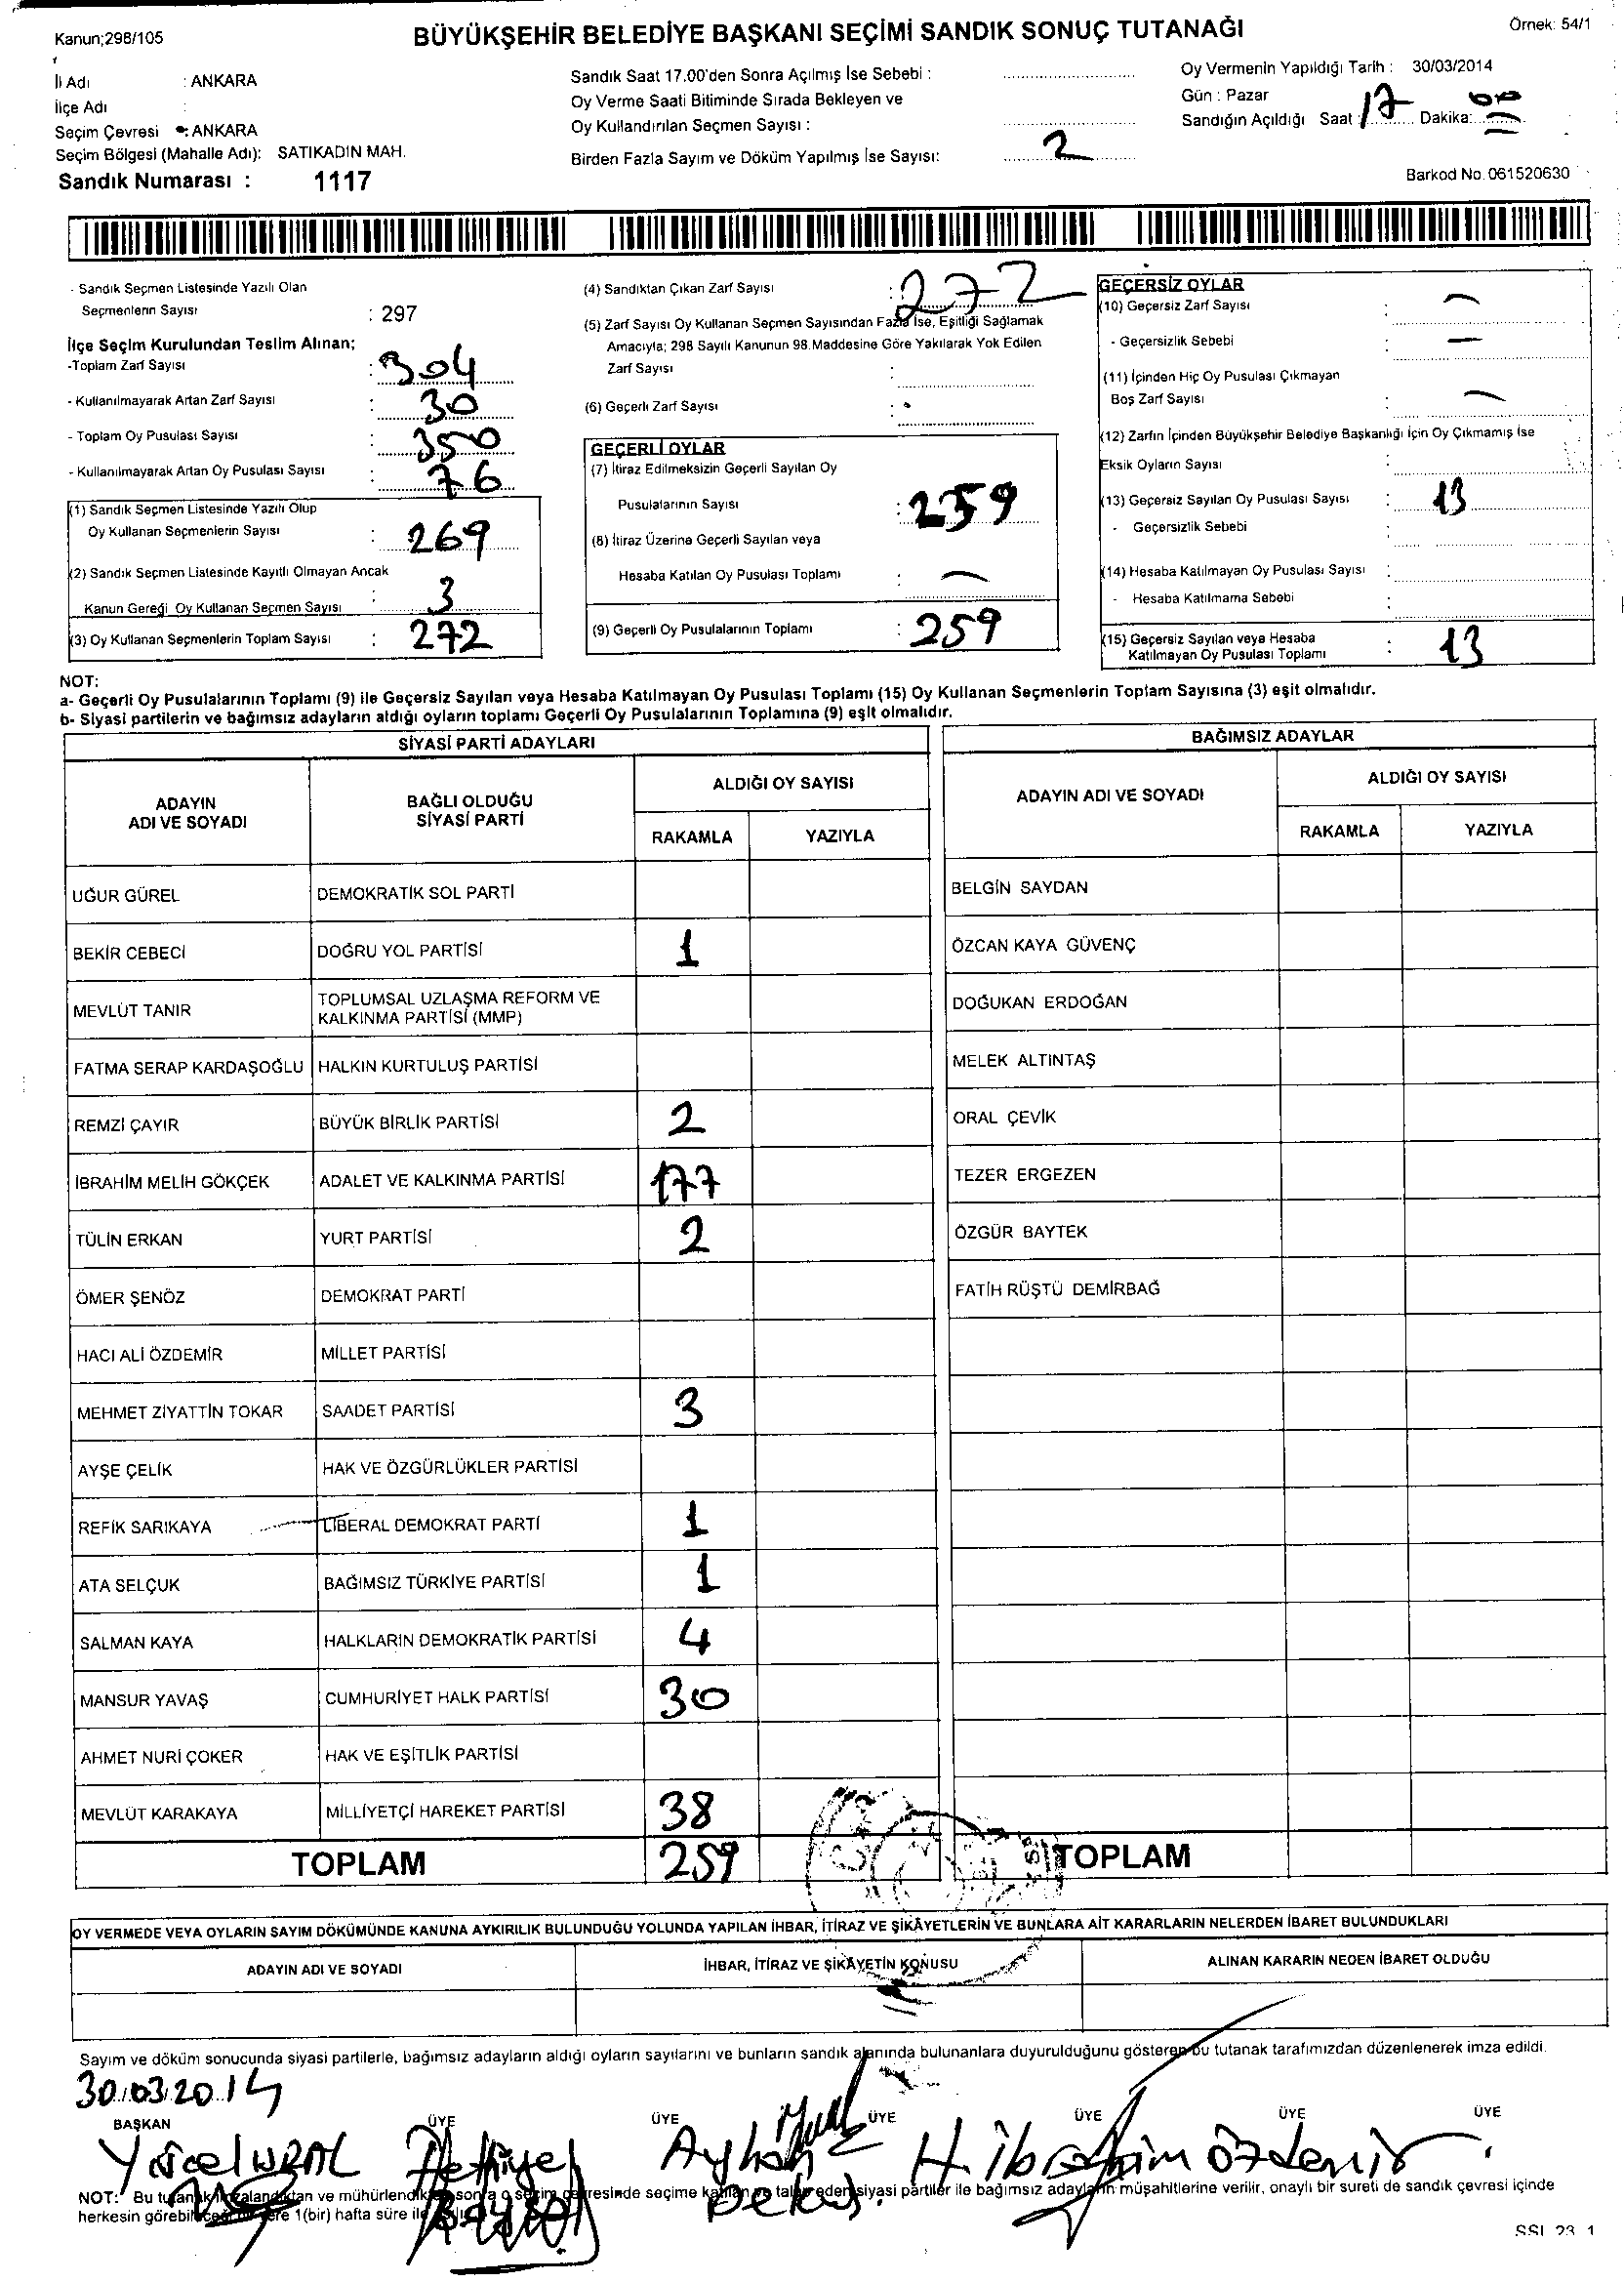 Kanun;298/105
BÜYÜKŞEHİR BELEDİYE BAŞKANI SEÇİMİ SANDIK SONUÇ TUTANAĞI
Örnek: 54/1
İl Adı : ANKARA
İlçe Adı :
Seçim Çevresi : ANKARA
Seçim Bölgesi (Mahalle Adı): SATIKADIN MAH.
Sandık Numarası : 1117
Sandık Saat 17.00'den Sonra Açılmış İse Sebebi :
Oy Verme Saati Bitiminde Sırada Bekleyen ve
Oy Kullandırılan Seçmen Sayısı :
Birden Fazla Sayım ve Döküm Yapılmış İse Sayısı: 2
Oy Vermenin Yapıldığı Tarih : 30/03/2014
Gün : Pazar
Sandığın Açıldığı Saat : 17 Dakika: 00
Barkod No.061520630
- Sandık Seçmen Listesinde Yazılı Olan
Seçmenlerin Sayısı : 297
İlçe Seçim Kurulundan Teslim Alınan;
-Toplam Zarf Sayısı : 304
- Kullanılmayarak Artan Zarf Sayısı : 30
- Toplam Oy Pusulası Sayısı : 350
- Kullanılmayarak Artan Oy Pusulası Sayısı : 76
(1) Sandık Seçmen Listesinde Yazılı Olup
Oy Kullanan Seçmenlerin Sayısı : 269
(2) Sandık Seçmen Listesinde Kayıtlı Olmayan Ancak
Kanun Gereği Oy Kullanan Seçmen Sayısı : 3
(3) Oy Kullanan Seçmenlerin Toplam Sayısı : 272
(4) Sandıktan Çıkan Zarf Sayısı : 272
(5) Zarf Sayısı Oy Kullanan Seçmen Sayısından Fazla İse, Eşitliği Sağlamak
Amacıyla; 298 Sayılı Kanunun 98.Maddesine Göre Yakılarak Yok Edilen
Zarf Sayısı :
(6) Geçerli Zarf Sayısı :
GEÇERLİ OYLAR
(7) İtiraz Edilmeksizin Geçerli Sayılan Oy
Pusulalarının Sayısı : 259
(8) İtiraz Üzerine Geçerli Sayılan veya
Hesaba Katılan Oy Pusulası Toplamı : —
(9) Geçerli Oy Pusulalarının Toplamı : 259
GEÇERSİZ OYLAR
(10) Geçersiz Zarf Sayısı : —
- Geçersizlik Sebebi : —
(11) İçinden Hiç Oy Pusulası Çıkmayan
Boş Zarf Sayısı : —
(12) Zarfın İçinden Büyükşehir Belediye Başkanlığı İçin Oy Çıkmamış İse
Eksik Oyların Sayısı :
(13) Geçersiz Sayılan Oy Pusulası Sayısı : 13
- Geçersizlik Sebebi :
(14) Hesaba Katılmayan Oy Pusulası Sayısı :
- Hesaba Katılmama Sebebi :
(15) Geçersiz Sayılan veya Hesaba
Katılmayan Oy Pusulası Toplamı : 13
NOT:
a- Geçerli Oy Pusulalarının Toplamı (9) ile Geçersiz Sayılan veya Hesaba Katılmayan Oy Pusulası Toplamı (15) Oy Kullanan Seçmenlerin Toplam Sayısına (3) eşit olmalıdır.
b- Siyasi partilerin ve bağımsız adayların aldığı oyların toplamı Geçerli Oy Pusulalarının Toplamına (9) eşit olmalıdır.
SİYASİ PARTİ ADAYLARI
ADAYIN
ADI VE SOYADI
BAĞLI OLDUĞU
SİYASİ PARTİ
ALDIĞI OY SAYISI
RAKAMLA YAZIYLA
UĞUR GÜREL DEMOKRATİK SOL PARTİ
BEKİR CEBECİ DOĞRU YOL PARTİSİ 1
MEVLÜT TANIR TOPLUMSAL UZLAŞMA REFORM VE
KALKINMA PARTİSİ (MMP)
FATMA SERAP KARDAŞOĞLU HALKIN KURTULUŞ PARTİSİ
REMZİ ÇAYIR BÜYÜK BİRLİK PARTİSİ 2
İBRAHİM MELİH GÖKÇEK ADALET VE KALKINMA PARTİSİ 177
TÜLİN ERKAN YURT PARTİSİ 2
ÖMER ŞENÖZ DEMOKRAT PARTİ
HACI ALİ ÖZDEMİR MİLLET PARTİSİ
MEHMET ZİYATTİN TOKAR SAADET PARTİSİ 3
AYŞE ÇELİK HAK VE ÖZGÜRLÜKLER PARTİSİ
REFİK SARIKAYA LİBERAL DEMOKRAT PARTİ 1
ATA SELÇUK BAĞIMSIZ TÜRKİYE PARTİSİ 1
SALMAN KAYA HALKLARIN DEMOKRATİK PARTİSİ 4
MANSUR YAVAŞ CUMHURİYET HALK PARTİSİ 30
AHMET NURİ ÇOKER HAK VE EŞİTLİK PARTİSİ
MEVLÜT KARAKAYA MİLLİYETÇİ HAREKET PARTİSİ 38
TOPLAM 259
BAĞIMSIZ ADAYLAR
ADAYIN ADI VE SOYADI
ALDIĞI OY SAYISI
RAKAMLA YAZIYLA
BELGİN SAYDAN
ÖZCAN KAYA GÜVENÇ
DOĞUKAN ERDOĞAN
MELEK ALTINTAŞ
ORAL ÇEVİK
TEZER ERGEZEN
ÖZGÜR BAYTEK
FATİH RÜŞTÜ DEMİRBAĞ
TOPLAM
OY VERMEDE VEYA OYLARIN SAYIM DÖKÜMÜNDE KANUNA AYKIRILIK BULUNDUĞU YOLUNDA YAPILAN İHBAR, İTİRAZ VE ŞİKÂYETLERİN VE BUNLARA AİT KARARLARIN NELERDEN İBARET BULUNDUKLARI
ADAYIN ADI VE SOYADI İHBAR, İTİRAZ VE ŞİKÂYETİN KONUSU ALINAN KARARIN NEDEN İBARET OLDUĞU
Sayım ve döküm sonucunda siyasi partilerle, bağımsız adayların aldığı oyların sayılarını ve bunların sandık alanında bulunanlara duyurulduğunu gösteren bu tutanak tarafımızdan düzenlenerek imza edildi.
30.03.2014
BAŞKAN ÜYE ÜYE ÜYE ÜYE ÜYE ÜYE
Yücel URAL Fethiye Ayhan H. İbrahim Özdemir
NOT: Bu tutanak imzalandıktan ve mühürlendikten sonra o seçim çevresinde seçime katılan ve talep eden siyasi partiler ile bağımsız adayların müşahitlerine verilir, onaylı bir sureti de sandık çevresi içinde
herkesin görebileceği bir yere 1(bir) hafta süre ile